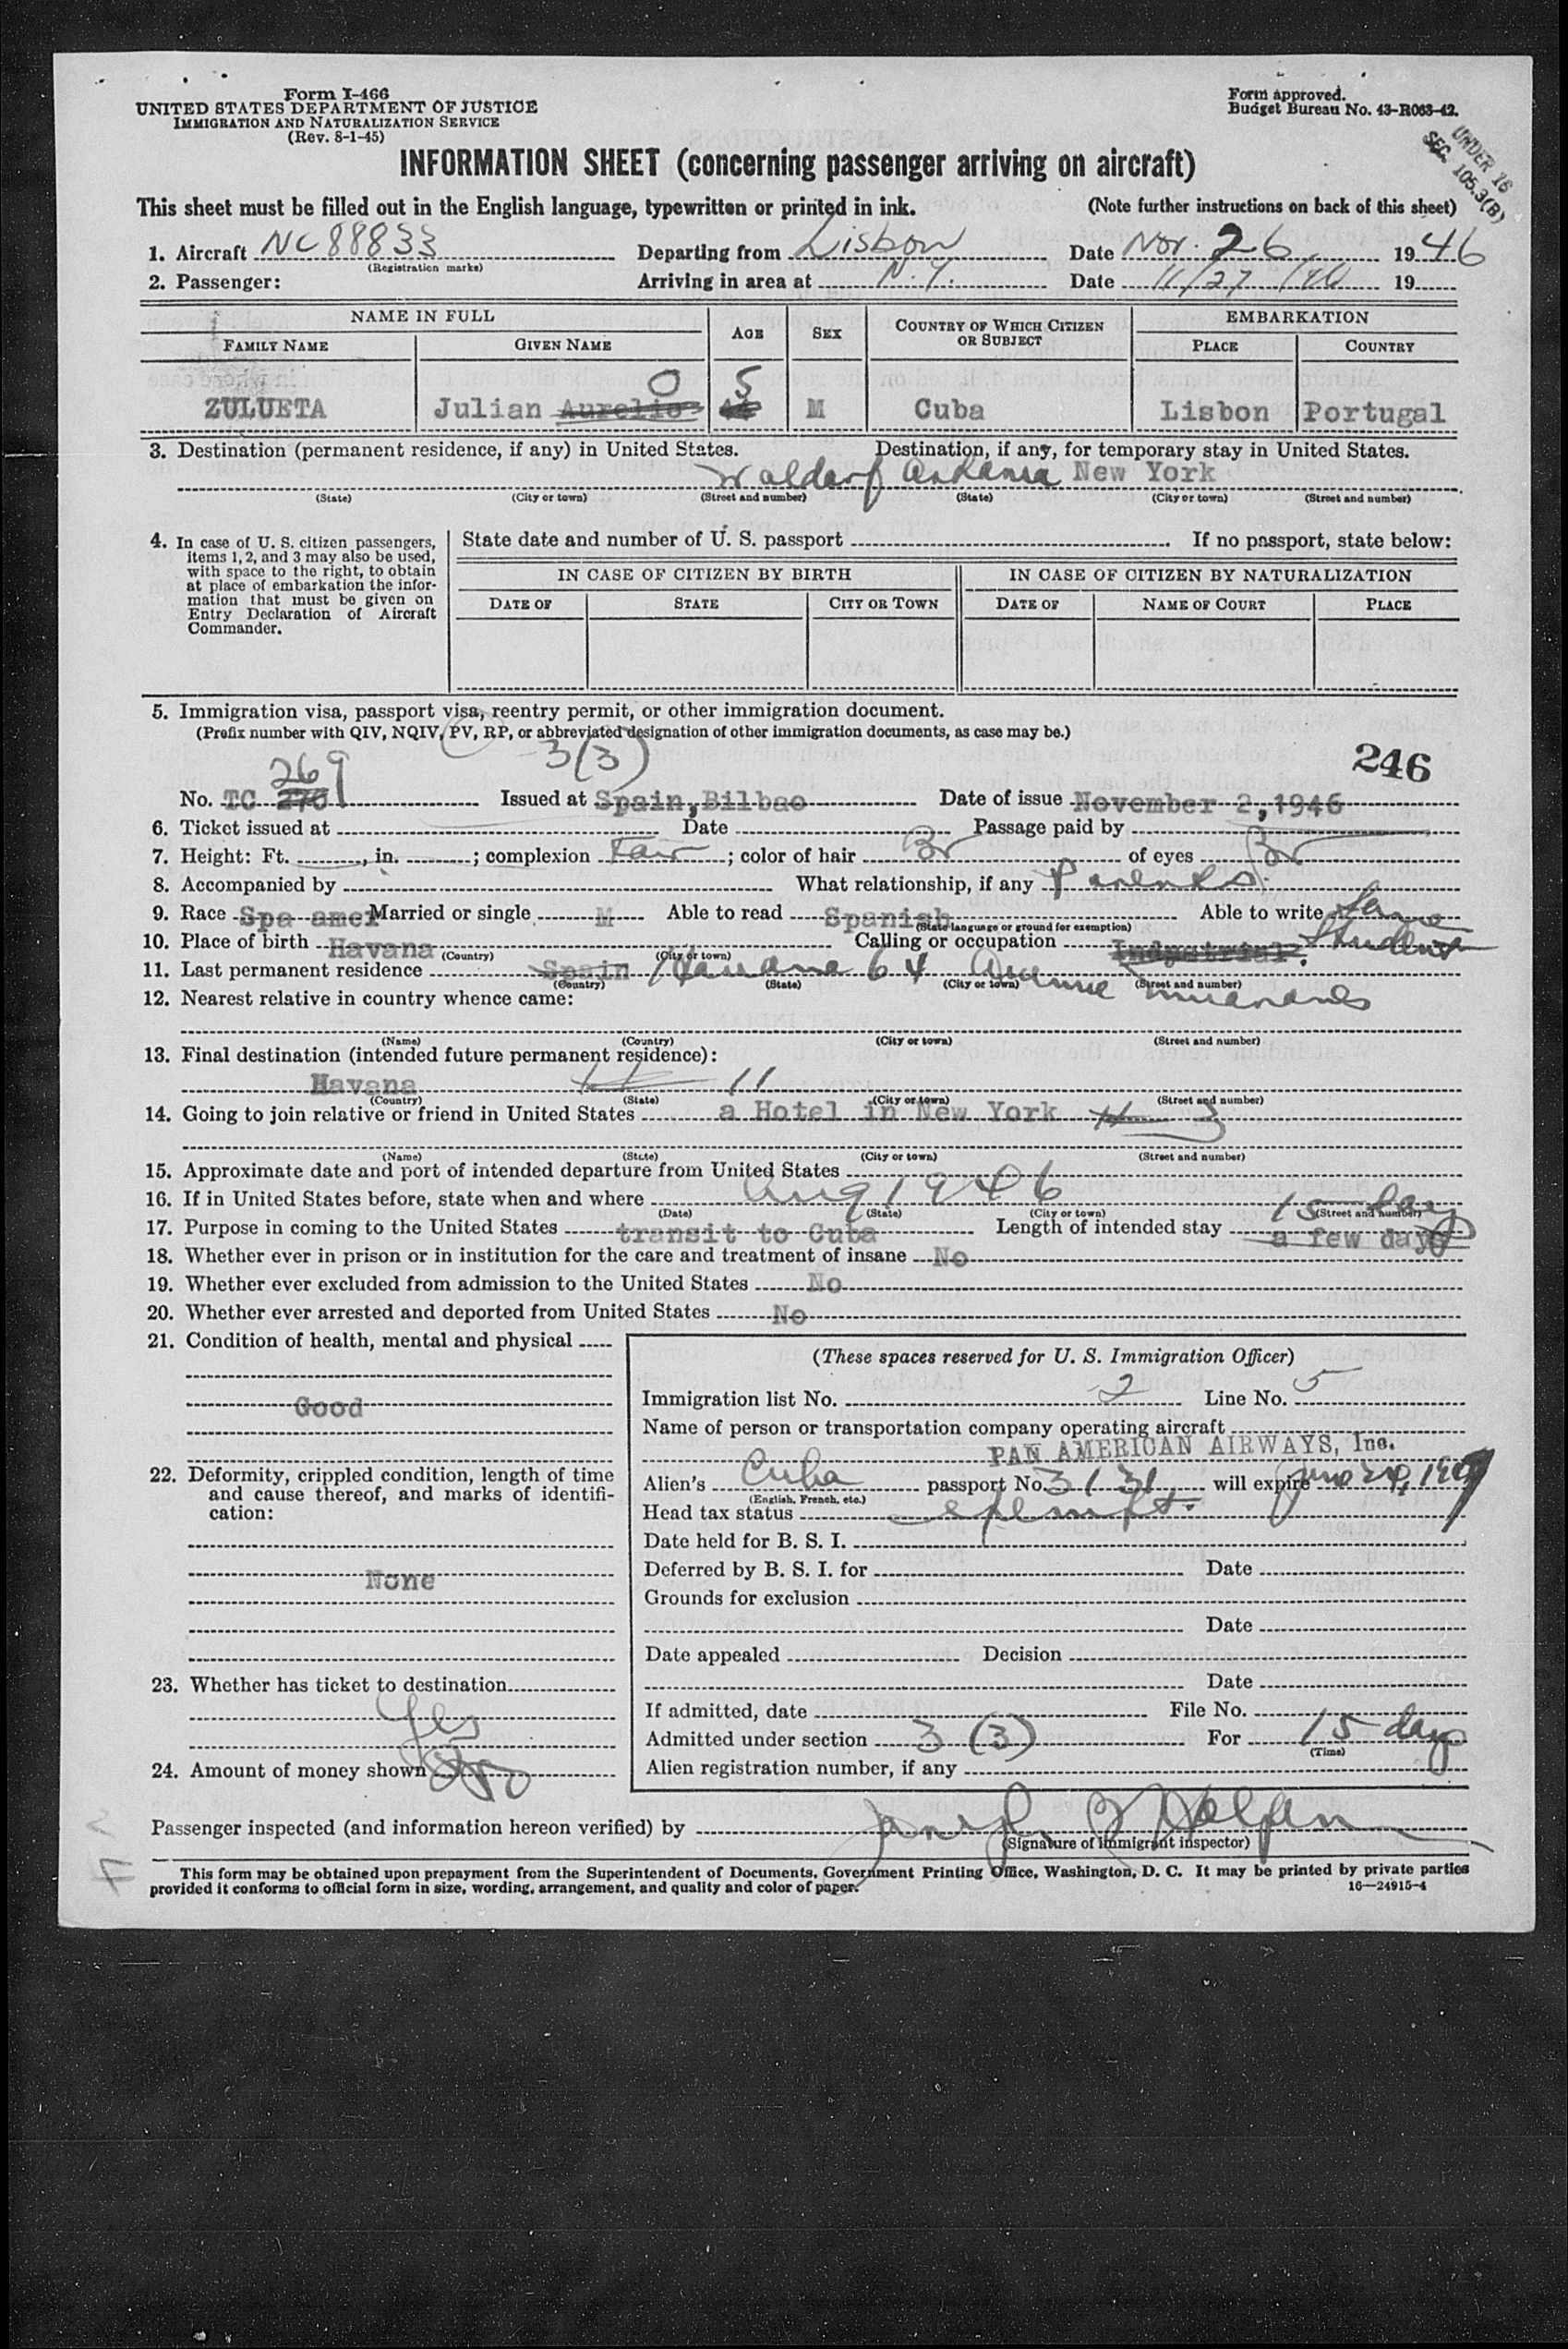 Form I-466
UNITED STATES DEPARTMENT OF JUSTICE
IMMIGRATION AND NATURALIZATION SERVICE
(Rev. 8-1-45)
Form approved.
Budget Bureau No. 43-R063-42.
UNDER 16
SEC. 105.3(B)
INFORMATION SHEET (concerning passenger arriving on aircraft)
This sheet must be filled out in the English language, typewritten or printed in ink. (Note further instructions on back of this sheet)
1. Aircraft NC88833 Departing from Lisbon Date Nov. 26 1946
(Registration marks)
2. Passenger: Arriving in area at N.Y. Date 11/27/46 19
NAME IN FULL AGE SEX COUNTRY OF WHICH CITIZEN OR SUBJECT EMBARKATION
FAMILY NAME GIVEN NAME PLACE COUNTRY
O 5
ZULUETA Julian Aurelio M Cuba Lisbon Portugal
3. Destination (permanent residence, if any) in United States. Destination, if any, for temporary stay in United States.
Waldorf New York
(State) (City or town) (Street and number) (State) (City or town) (Street and number)
4. In case of U. S. citizen passengers, items 1, 2, and 3 may also be used, with space to the right, to obtain at place of embarkation the information that must be given on Entry Declaration of Aircraft Commander.
State date and number of U. S. passport If no passport, state below:
IN CASE OF CITIZEN BY BIRTH IN CASE OF CITIZEN BY NATURALIZATION
DATE OF STATE CITY OR TOWN DATE OF NAME OF COURT PLACE
5. Immigration visa, passport visa, reentry permit, or other immigration document.
(Prefix number with QIV, NQIV, PV, RP, or abbreviated designation of other immigration documents, as case may be.)
3(3)
246
269
No. TC 270 Issued at Spain, Bilbao Date of issue November 2, 1946
6. Ticket issued at Date Passage paid by
7. Height: Ft. , in. ; complexion Fair ; color of hair Br of eyes Br
8. Accompanied by What relationship, if any Parents
9. Race Spa amer Married or single M Able to read Spanish Able to write Same
(State language or ground for exemption)
10. Place of birth Havana Calling or occupation Industrial. Student
(Country) (City or town)
11. Last permanent residence Spain Havana 64 Avenue Miramares
(Country) (State) (City or town) (Street and number)
12. Nearest relative in country whence came:
(Name) (Country) (City or town) (Street and number)
13. Final destination (intended future permanent residence):
Havana 11
(Country) (State) (City or town) (Street and number)
14. Going to join relative or friend in United States a Hotel in New York
(Name) (State) (City or town) (Street and number)
15. Approximate date and port of intended departure from United States
16. If in United States before, state when and where Aug 1946
(Date) (State) (City or town) (Street and number)
15 day
17. Purpose in coming to the United States transit to Cuba Length of intended stay a few days
18. Whether ever in prison or in institution for the care and treatment of insane No
19. Whether ever excluded from admission to the United States No
20. Whether ever arrested and deported from United States No
21. Condition of health, mental and physical
Good
22. Deformity, crippled condition, length of time and cause thereof, and marks of identification:
None
23. Whether has ticket to destination
Yes
24. Amount of money shown
(These spaces reserved for U. S. Immigration Officer)
Immigration list No. 2 Line No. 5
Name of person or transportation company operating aircraft
PAN AMERICAN AIRWAYS, Inc.
Alien's Cuba passport No. 3131 will expire
(English, French, etc.)
Head tax status exempt.
Date held for B. S. I.
Deferred by B. S. I. for Date
Grounds for exclusion
Date
Date appealed Decision
Date
If admitted, date File No.
Admitted under section 3 (3) For 15 days
(Time)
Alien registration number, if any
Passenger inspected (and information hereon verified) by
(Signature of immigrant inspector)
This form may be obtained upon prepayment from the Superintendent of Documents, Government Printing Office, Washington, D. C. It may be printed by private parties
provided it conforms to official form in size, wording, arrangement, and quality and color of paper.
16—24915-4